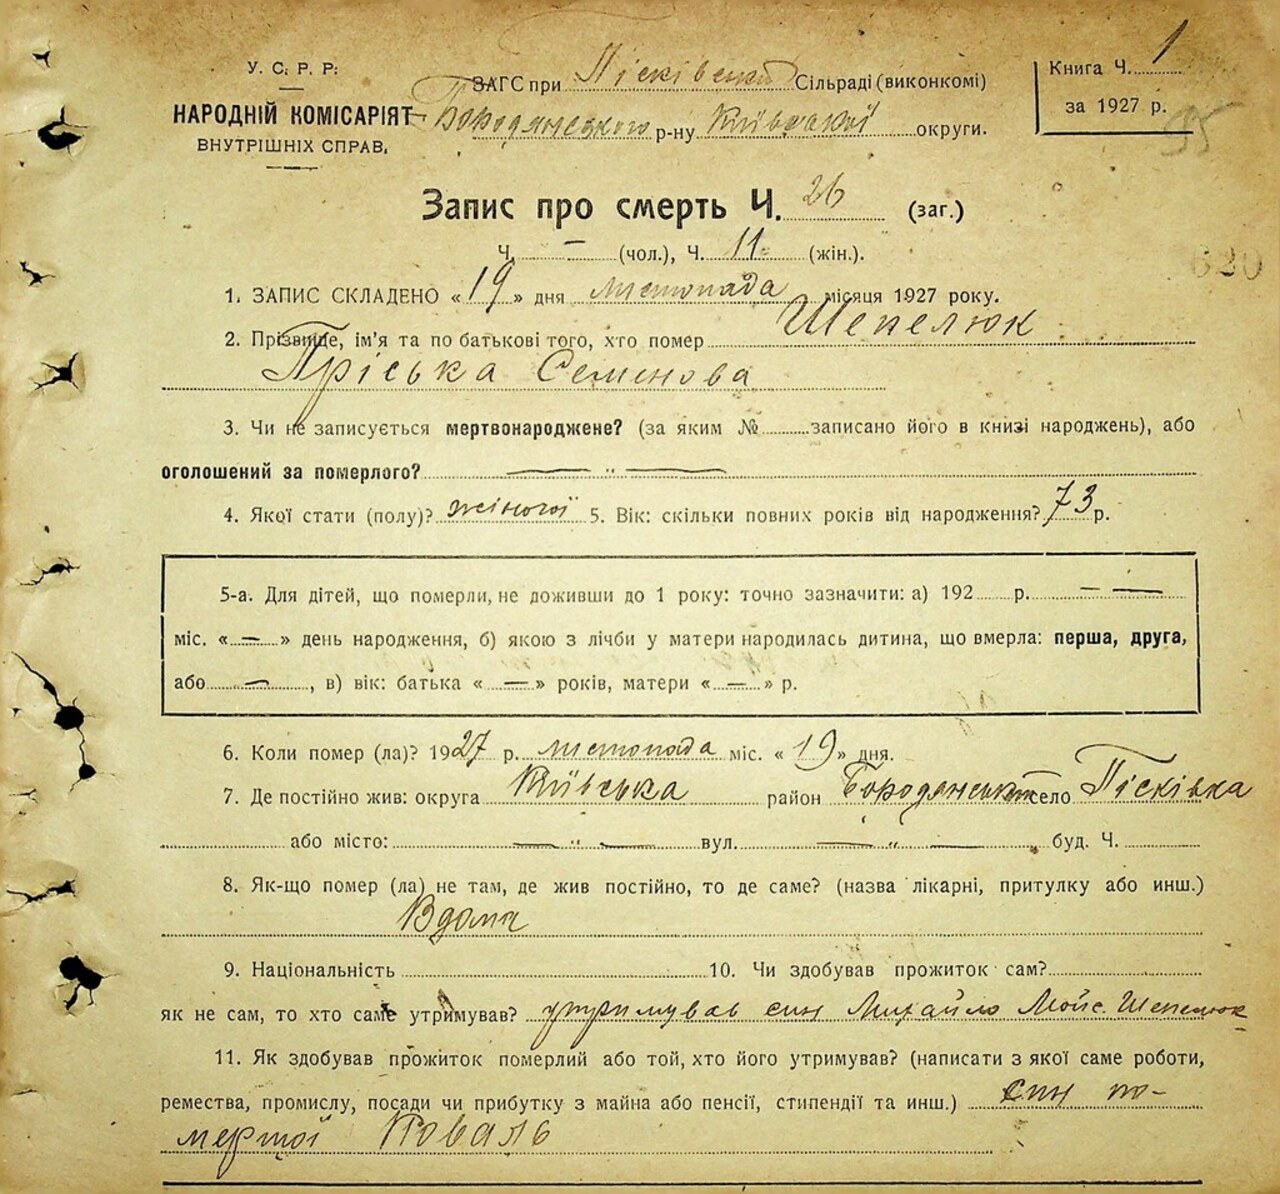 У. С. Р. Р.
НАРОДНІЙ КОМІСАРІЯТ
ВНУТРІШНІХ СПРАВ.
ЗАГС при Пісківській Сільраді (виконкомі)
Бородянського р-ну Київської округи.
Книга Ч. 1
за 1927 р.
95
Запис про смерть Ч. 26 (заг.)
Ч. — (чол.), Ч. 11 (жін.).
620
1. ЗАПИС СКЛАДЕНО «19» дня листопада місяця 1927 року.
2. Прізвище, ім'я та по батькові того, хто помер Шепелюк
Пріська Семенова
3. Чи не записується мертвонароджене? (за яким № записано його в книзі народжень), або
оголошений за померлого? — „ —
4. Якої стати (полу)? жіночої 5. Вік: скільки повних років від народження? 73 р.
5-а. Для дітей, що померли, не доживши до 1 року: точно зазначити: а) 192 р. — —
міс. «—» день народження, б) якою з лічби у матери народилась дитина, що вмерла: перша, друга,
або —, в) вік: батька «—» років, матери «—» р.
6. Коли помер (ла)? 1927 р. листопада міс. «19» дня.
7. Де постійно жив: округа Київська район Бородянський село Пісківка
або місто: — „ — вул. — „ — буд. Ч.
8. Як-що помер (ла) не там, де жив постійно, то де саме? (назва лікарні, притулку або инш.)
Вдома
9. Національність 10. Чи здобував прожиток сам?
як не сам, то хто саме утримував? утримував син Михайло Мойс. Шепелюк
11. Як здобував прожиток померлий або той, хто його утримував? (написати з якої саме роботи,
ремества, промислу, посади чи прибутку з майна або пенсії, стипендії та инш.) син по-
мершої Коваль